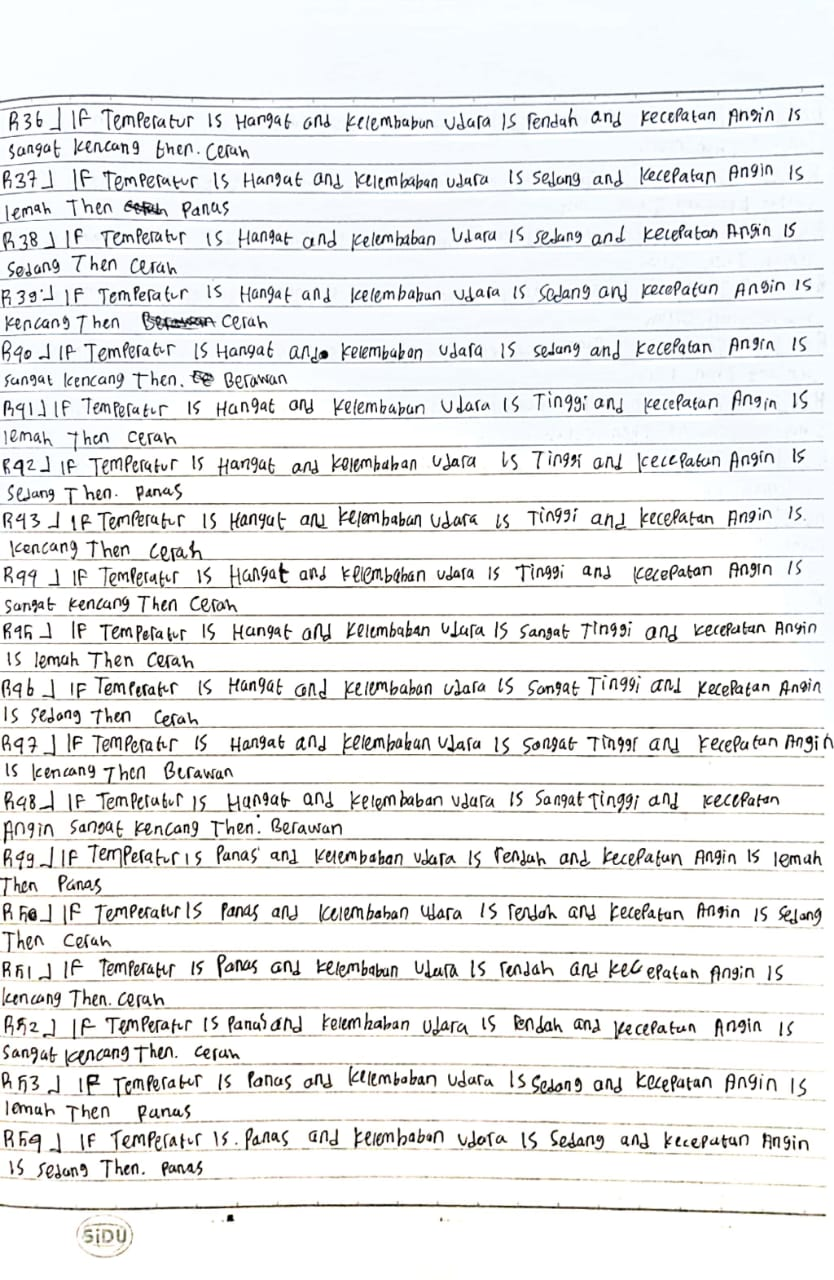 R36] IF Temperatur IS Hangat and Kelembaban Udara IS rendah and Kecepatan Angin IS
sangat kencang then. Cerah
R37] IF Temperatur IS Hangat and Kelembaban udara IS sedang and Kecepatan Angin IS
lemah Then Panas
R38] IF Temperatur IS Hangat and Kelembaban Udara IS sedang and kecepatan Angin IS
Sedang Then Cerah
R39] IF Temperatur IS Hangat and kelembaban udara IS sedang and kecepatan Angin IS
Kencang Then Berawan Cerah
R40] IF Temperatur IS Hangat and kelembaban udara IS sedang and kecepatan Angin IS
sangat kencang Then. Berawan
R41] IF Temperatur IS Hangat and Kelembaban Udara IS Tinggi and kecepatan Angin IS
lemah Then Cerah
R42] IF Temperatur IS Hangat and kelembaban udara IS Tinggi and kecepatan Angin IS
Sedang Then. Panas
R43] IF Temperatur IS Hangat and kelembaban udara IS Tinggi and kecepatan Angin IS.
kencang Then Cerah
R44] IF Temperatur IS Hangat and kelembaban udara IS Tinggi and kecepatan Angin IS
Sangat kencang Then Cerah
R45] IF Temperatur IS Hangat and Kelembaban Udara IS Sangat Tinggi and kecepatan Angin
IS lemah Then Cerah
R46] IF Temperatur IS Hangat and kelembaban udara IS Sangat Tinggi and Kecepatan Angin
IS Sedang Then Cerah
R47] IF Temperatur IS Hangat and kelembaban Udara IS Sangat Tinggi and Kecepatan Angin
IS kencang Then Berawan
R48] IF Temperatur IS Hangat and kelembaban udara IS Sangat Tinggi and kecepatan
Angin Sangat kencang Then. Berawan
R49] IF Temperatur IS Panas and kelembaban udara IS rendah and kecepatan Angin IS lemah
Then Panas
R50] IF Temperatur IS Panas and kelembaban udara IS rendah and kecepatan Angin IS Sedang
Then Cerah
R51] IF Temperatur IS Panas and kelembaban Udara IS rendah and kecepatan Angin IS
kencang Then. Cerah
R52] IF Temperatur IS Panas and kelembaban udara IS Rendah and kecepatan Angin IS
Sangat kencang Then. Cerah
R53] IF Temperatur IS Panas and kelembaban udara IS Sedang and kecepatan Angin IS
lemah Then Panas
R54] IF Temperatur IS. Panas and kelembaban udara IS Sedang and kecepatan Angin
IS sedang Then. Panas
SiDU